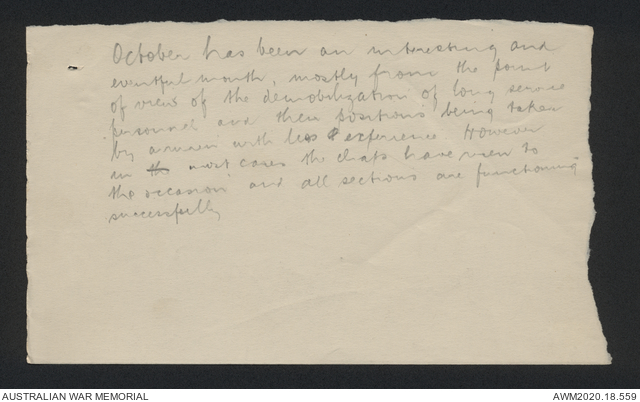 October has been an interesting and
eventful month, mostly from the point
of view of the demobilization of long service
personnel and their positions being taken
by airmen with less experience. However
in most cases the chaps have risen to
the occasion and all sections are functioning
successfully
AUSTRALIAN WAR MEMORIAL
AWM2020.18.559